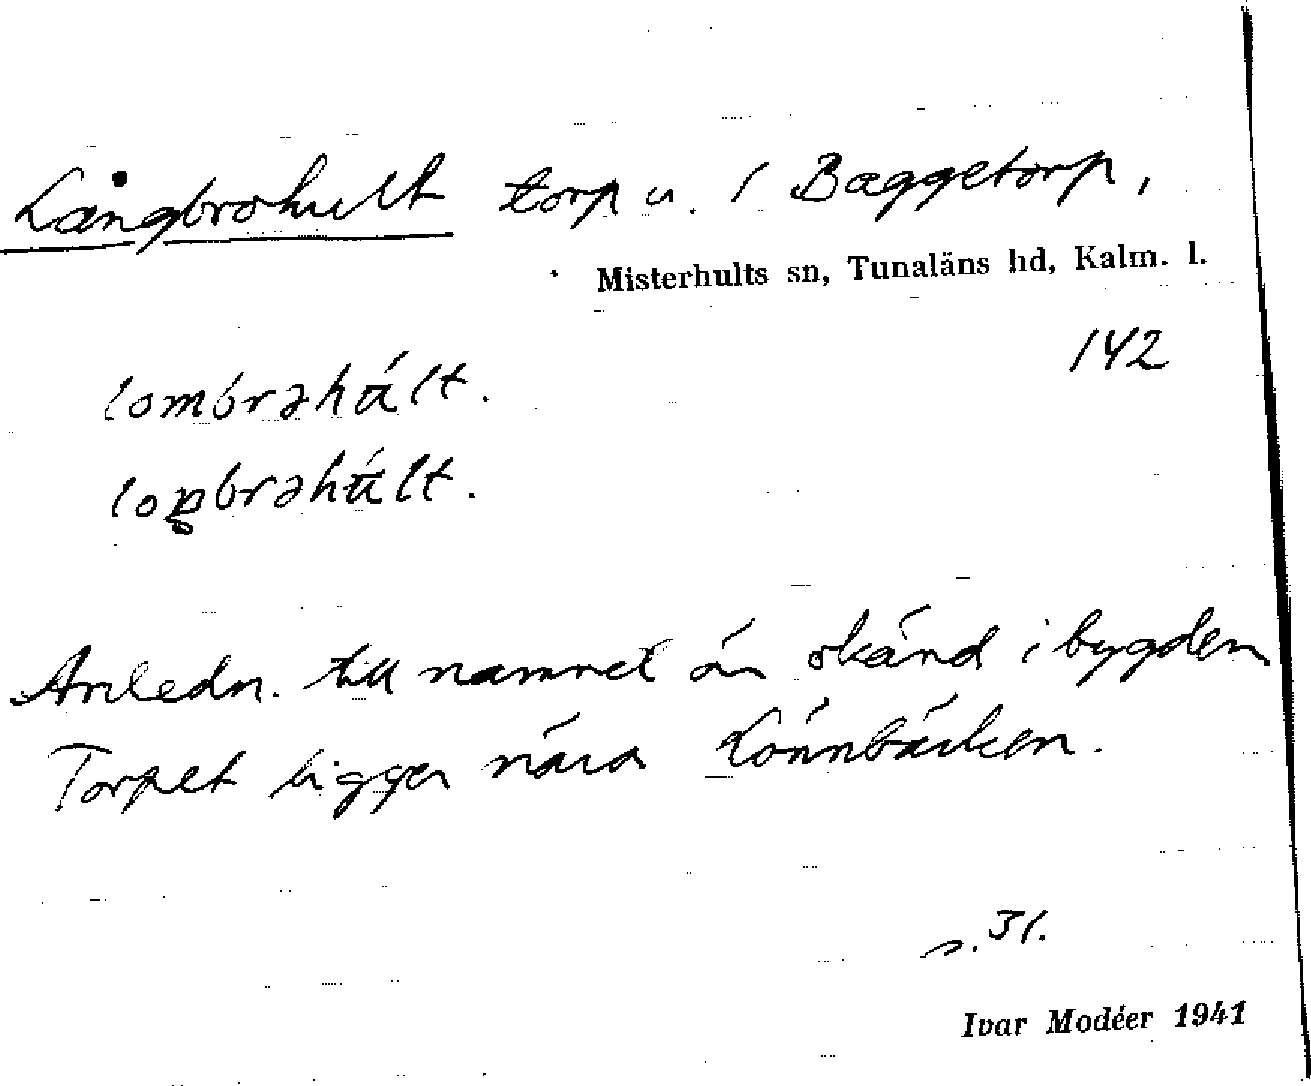 Långbrohult torp u. 1 Baggetorp,
Misterhults sn, Tunaläns hd, Kalm. l.
142
lombrəhu̇́lt.
loŋbrəhu̇́lt.
Anledn. till namnet är okänd i bygden
Torpet ligger nära Lönnbäcken.
s. 31.
Ivar Modéer 1941